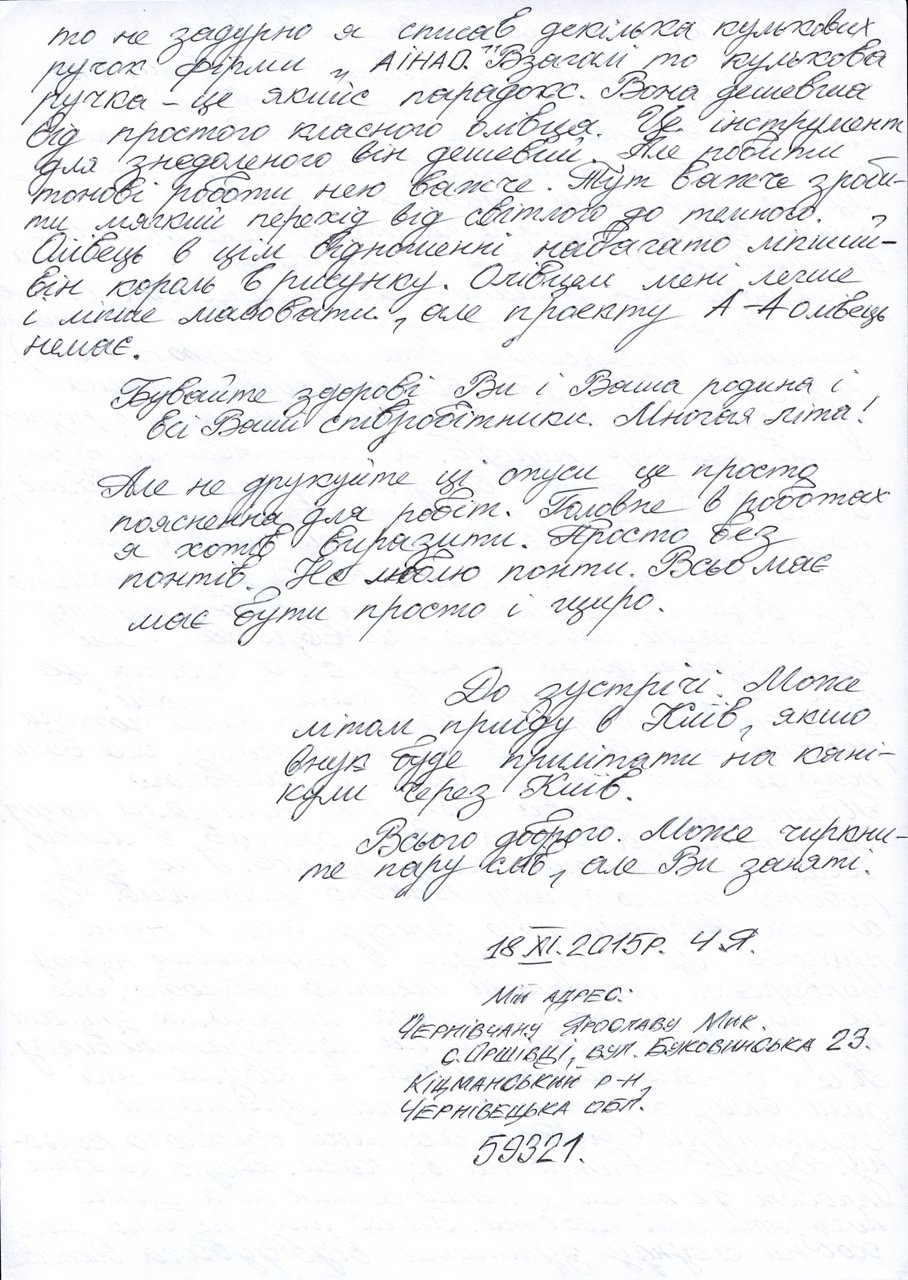 то не задурно я списав декілька кулькових
ручок фірми „АІНАО." Взагалі то кулькова
ручка – це якийсь парадокс. Вона дешевша
від простого класного олівця. Це інструмент
для знедоленого він дешевий. Але робити
тонові роботи нею важче. Тут важче зроби-
ти мягкий перехід від світлого до темного.
Олівець в цім відношенні набагато ліпший –
він король в рисунку. Олівцем мені легше
і ліпше малювати, але проекту А-4 олівець
немає.
Бувайте здорові Ви і Ваша родина і
всі Ваші співробітники. Многая літа!
Але не друкуйте ці опуси це просто
пояснення для робіт. Головне в роботах
я хотів виразити. Просто без
понтів. Не люблю понти. Всьо має
має бути просто і щиро.
До зустрічі. Може
літом приїду в Київ, якшо
внук буде прилітати на кані-
кули через Київ.
Всього доброго. Може чиркни-
те пару слів, але Ви заняті.
18.XI.2015р. Ч.Я.
Мій адрес:
Чернівчану Ярославу Мик.
с. Оршівці, вул. Буковинська 23.
Кіцманський р-н,
Чернівецька обл.
59321.